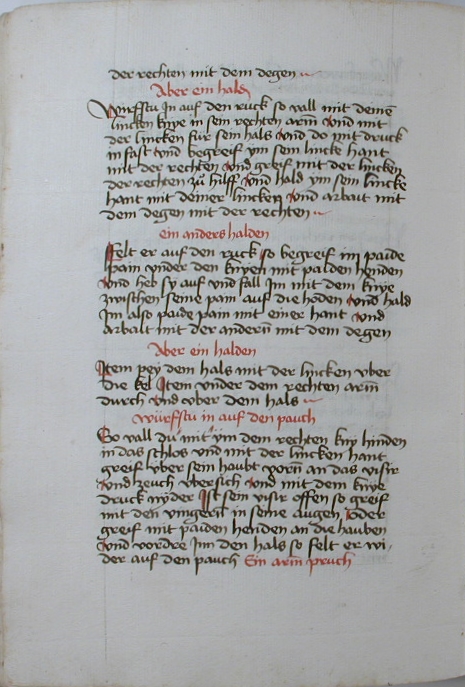 der rechten mit dem degen
Aber ein hald
Würfstu In auf den ruck so vall mit deinē
lincken knye in sein rechten arm Vnd mit
der lincken für sein hals Vnd do mit druck
in fast Vnd begreif ym sein lincke hant
mit der rechten Vnd greif mit der lincken
der rechten zů hilff Vnd hald ym sein lincke
hant mit deiner lincken Vnd arbait mit
dem degen mit der rechten
ein anders halden
Felt er auf den ruck so begreif im paide
pain vnder den knyen mit paiden henden
Vnd heb sy auf vnd fall Im mit dem knye
zwischen seine pain auf die hoden Vnd hald
Im also paide pain mit einer hant Vnd
arbait mit der andern mit dem degen
Aber ein halden
Item pey dem hals mit der lincken vber
die kel Item vnder dem rechten arm
durch Vnd vber dem hals
würfstu in auf den pauch
So vall du mit ym dem rechten kny hinden
in das schlos vnd mit der lincken hant
greif vber sein haubt vorn an das visir
Vnd zeuch vbersich Vnd mit dem knye
druck nyder Ist sein visir offen so greif
mit den vingern in seine augen Oder
greif mit paiden henden an die hauben
Vnd vordre Im den hals so felt er wi
der auf den pauch Ein arm pruch